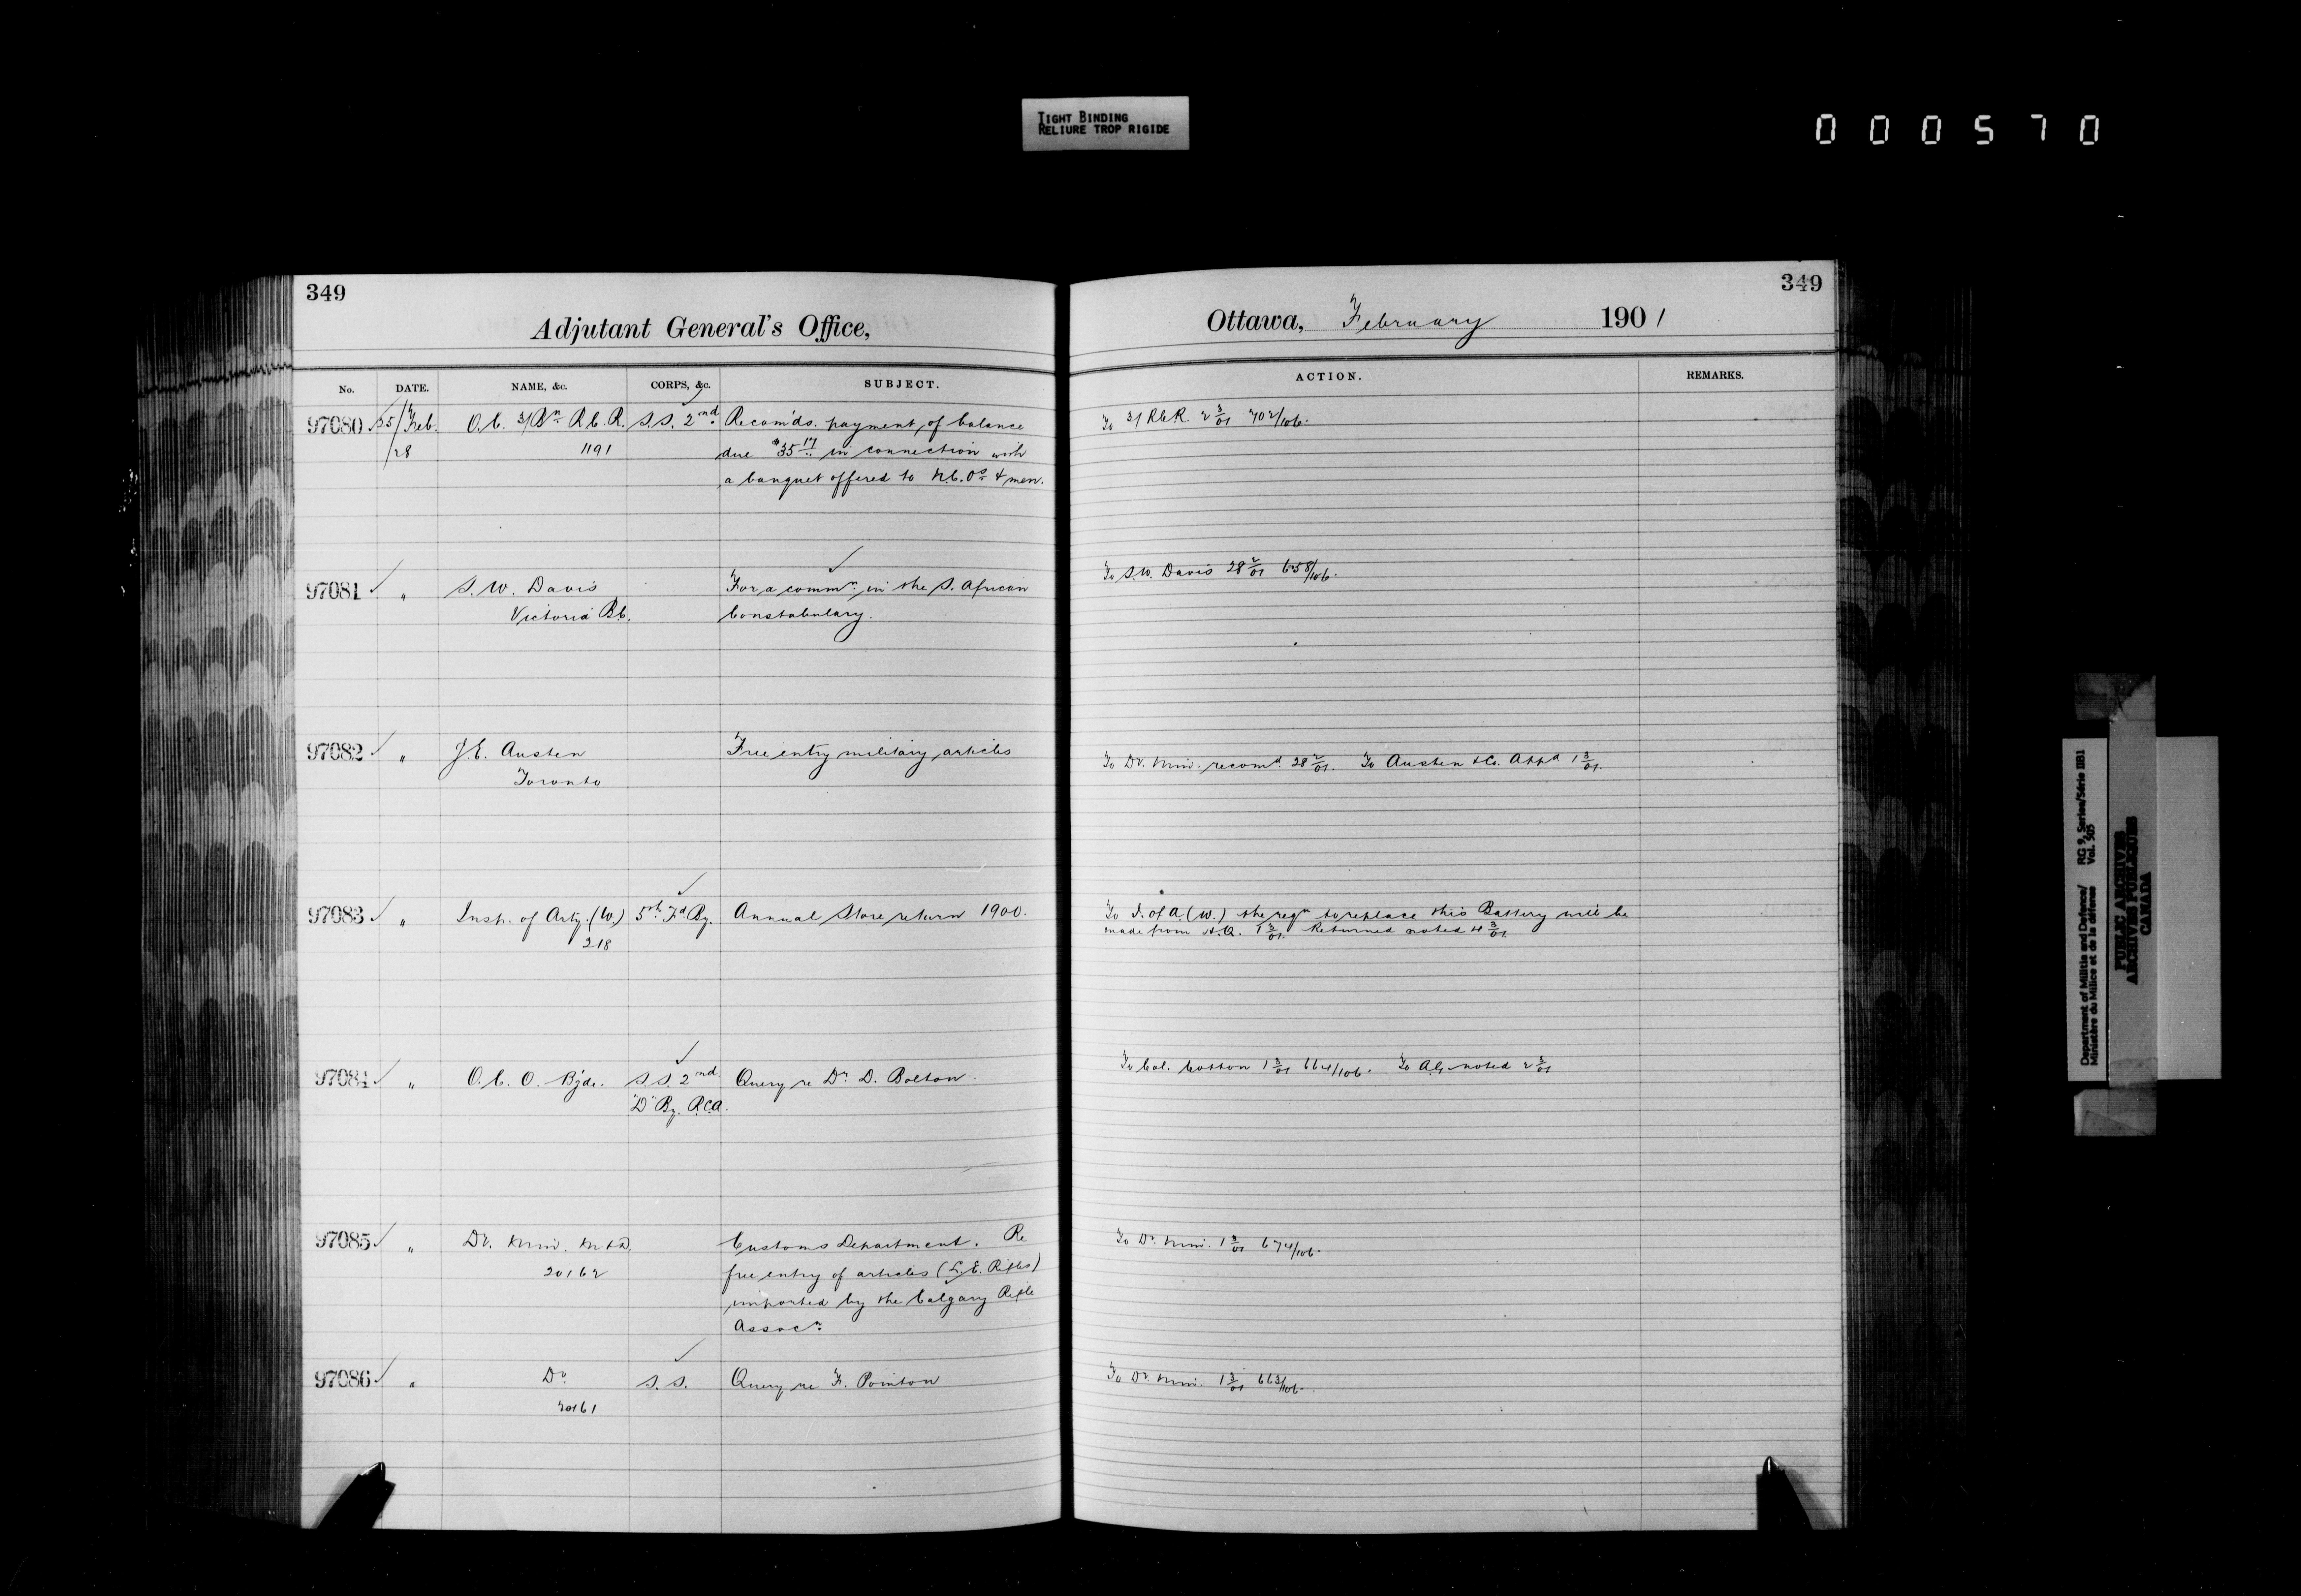 TIGHT BINDING
RELIURE TROP RIGIDE
000570
349
Adjutant General's Office,
No. DATE. NAME, &c. CORPS, &c. SUBJECT.
97080 25/Feb. O.C. 3/Bn R.C.R. S.S. 2nd Recom'ds. payment of balance
/28 1191 due $35.17 in connection with
a banquet offered to N.C.Os & men.
97081 " S.W. Davis For a commn. in the S. African
Victoria B.C. Constabulary.
97082 " J.E. Austen Free entry military articles
Toronto
97083 " Insp. of Arty. (W.) 5th Fd By. Annual Store return 1900.
218
97084 " O.C. O. Bjde. S.S. 2nd Query re Dr. D. Bolton.
"D" By. R.C.A.
97085 " Dy. Min. M & D. Customs Department. Re
20162 free entry of articles (L.E. Rifles)
imported by the Calgary Rifle
Assocn.
97086 " Do S.S. Query re F. Pointon
20161
349
Ottawa, February 1901
ACTION. REMARKS.
To 3/RCR. 2 3/01 702/106.
To S.W. Davis 28 2/01 658/106.
To Dy. Min. recomd. 28 2/01. To Austen & Co. Appd 1 3/01.
To I. of A. (W.) the reqn to replace this Battery will be
made from H.Q. 1 3/01. Returned noted 4 3/01.
To Col. Cotton 1 3/01 664/106. To AG noted 2 3/01
To Dy. Min. 1 3/01 674/106.
To Dy. Min. 1 3/01 663/106.
Department of Militia and Defence/ RG 9, Series/Série IIB1
Ministère du Milice et de la défence Vol. 505
PUBLIC ARCHIVES
ARCHIVES PUBLIQUES
CANADA